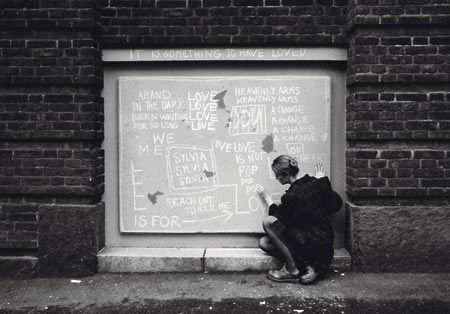 IT IS SOMETHING TO HAVE LOVED
A HAND
IN THE DARK
BEEN WAITING
FOR SO LONG
LOVE
LOVE
LOVE
LOVE
HEAVENLY ARMS
HEAVENLY ARMS
YOU
A CHANGE
A CHANGE
A CHANGE
A CHANGE
OF
HEART
WE
ME
SYLVIA
SYLVIA
SYLVIA
LOVE LOVE
IS NOT
POP
POP
POP
POP
REACH OUT
TO HOLD ME
L
L
L
L IS FOR
LO